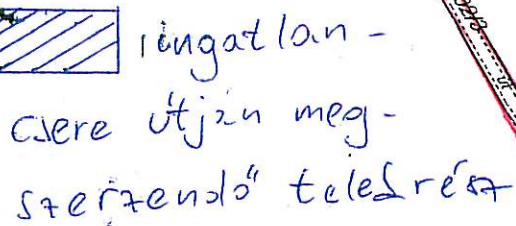 ingatlan-
csere útján meg-
szerzendő telekrész